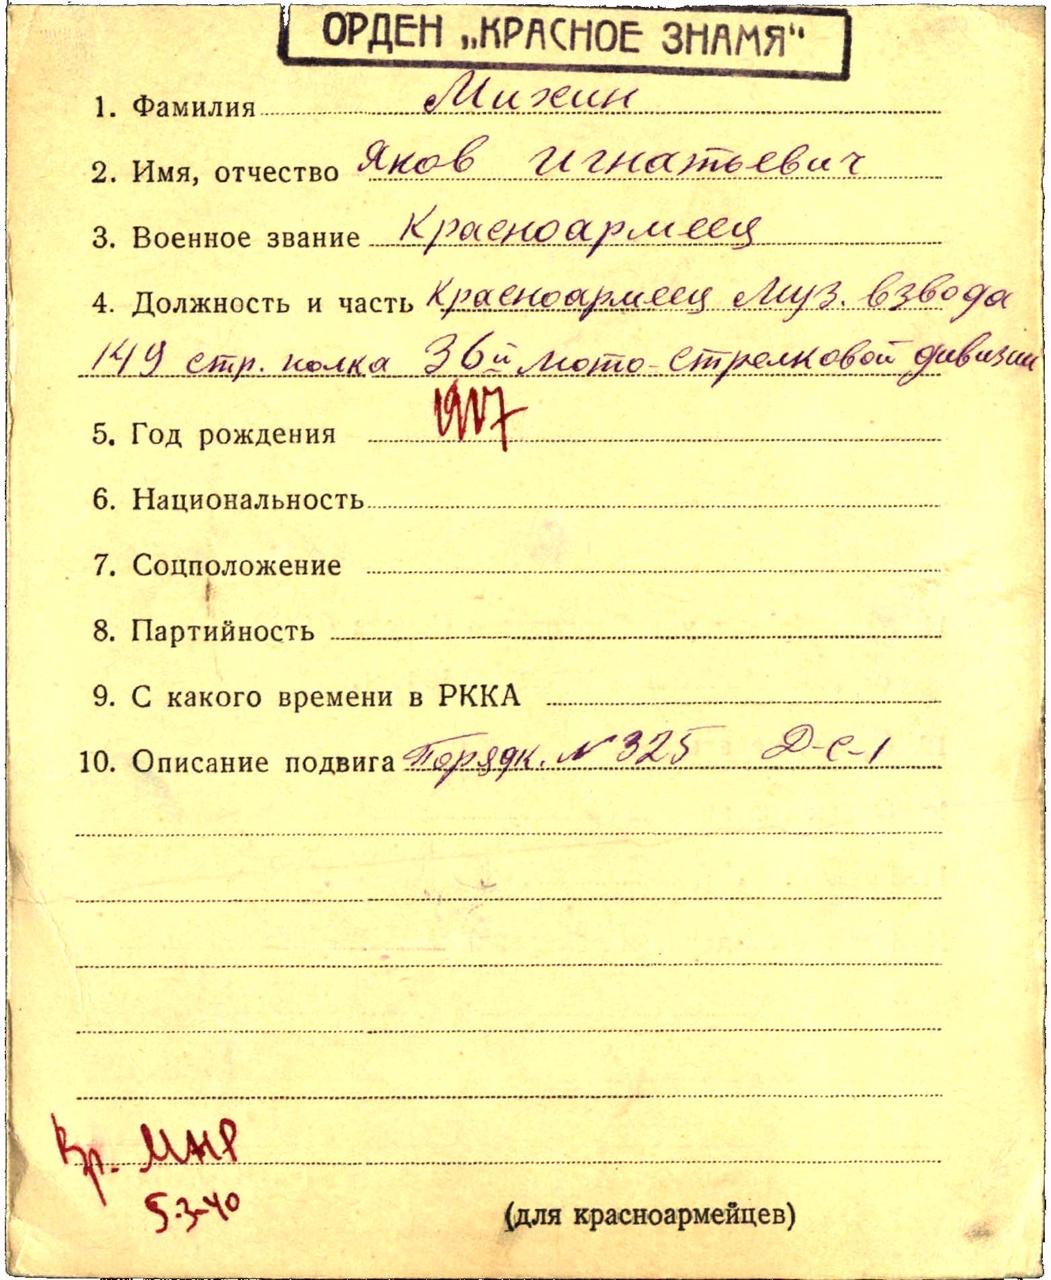 ОРДЕН „КРАСНОЕ ЗНАМЯ“
1. Фамилия Михин
2. Имя, отчество Яков Игнатьевич
3. Военное звание Красноармеец
4. Должность и часть Красноармеец Муз. взвода
149 стр. полка 36й мото-стрелковой дивизии
5. Год рождения 1917
6. Национальность
7. Соцположение
8. Партийность
9. С какого времени в РККА
10. Описание подвига Порядк. № 325 Д-С-1
Вр. МНР
5-3-40
(для красноармейцев)